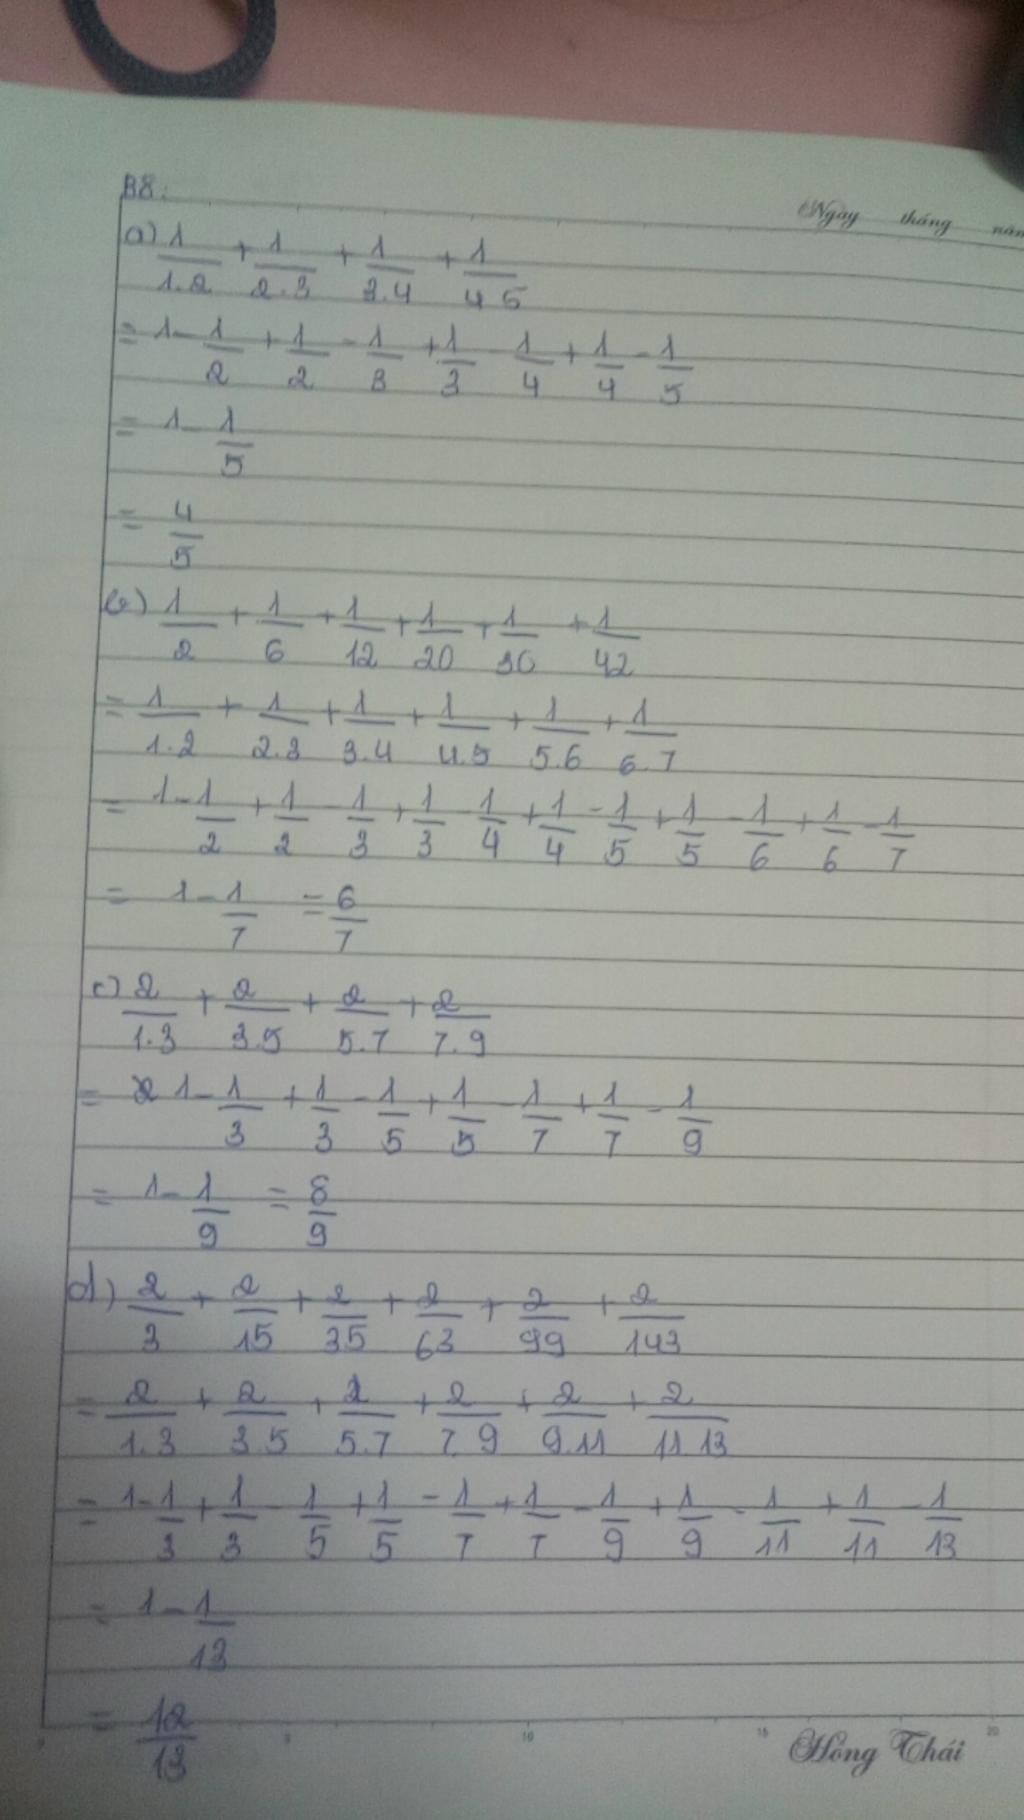 B8:
Ngày tháng năm
a) 1/1.2 + 1/2.3 + 1/3.4 + 1/4.5
= 1 - 1/2 + 1/2 - 1/3 + 1/3 - 1/4 + 1/4 - 1/5
= 1 - 1/5
= 4/5
b) 1/2 + 1/6 + 1/12 + 1/20 + 1/30 + 1/42
= 1/1.2 + 1/2.3 + 1/3.4 + 1/4.5 + 1/5.6 + 1/6.7
= 1 - 1/2 + 1/2 - 1/3 + 1/3 - 1/4 + 1/4 - 1/5 + 1/5 - 1/6 + 1/6 - 1/7
= 1 - 1/7 = 6/7
c) 2/1.3 + 2/3.5 + 2/5.7 + 2/7.9
= 1 - 1/3 + 1/3 - 1/5 + 1/5 - 1/7 + 1/7 - 1/9
= 1 - 1/9 = 8/9
d) 2/3 + 2/15 + 2/35 + 2/63 + 2/99 + 2/143
= 2/1.3 + 2/3.5 + 2/5.7 + 2/7.9 + 2/9.11 + 2/11.13
= 1 - 1/3 + 1/3 - 1/5 + 1/5 - 1/7 + 1/7 - 1/9 + 1/9 - 1/11 + 1/11 - 1/13
= 1 - 1/13
= 12/13
0 5 10 15 20
Hồng Thái